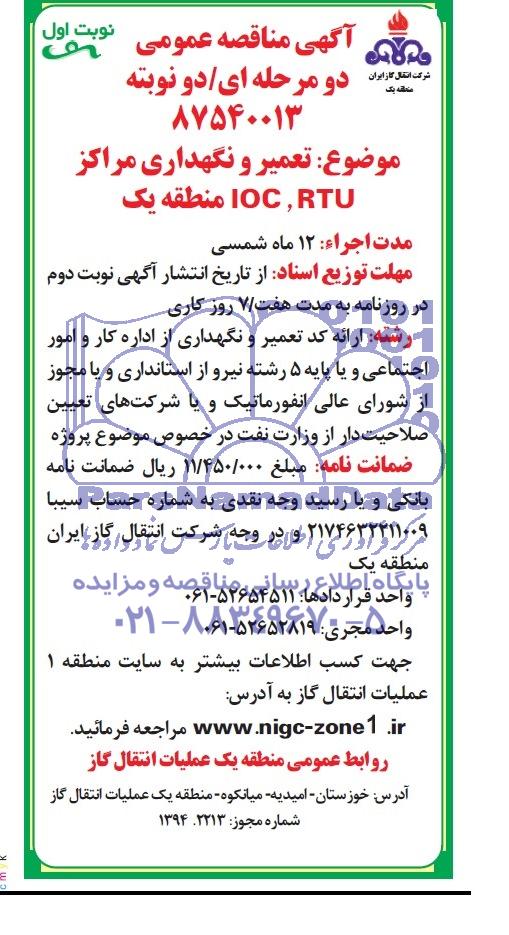 نوبت اول
شرکت انتقال گاز ایران
منطقه یک
آگهی مناقصه عمومی
دو مرحله ای/دو نوبته
۸۷۵۴۰۰۱۳
موضوع: تعمیر و نگهداری مراکز
IOC , RTU منطقه یک
مدت اجراء: ۱۲ ماه شمسی
مهلت توزیع اسناد: از تاریخ انتشار آگهی نوبت دوم
در روزنامه به مدت هفت/۷ روز کاری
رشته: ارائه کد تعمیر و نگهداری از اداره کار و امور
اجتماعی و یا پایه ۵ رشته نیرو از استانداری و یا مجوز
از شورای عالی انفورماتیک و یا شرکت‌های تعیین
صلاحیت‌دار از وزارت نفت در خصوص موضوع پروژه
ضمانت نامه: مبلغ ۱۱/۴۵۰/۰۰۰ ریال ضمانت نامه
بانکی و یا رسید وجه نقدی به شماره حساب سیبا
و در وجه شرکت انتقال گاز ایران
منطقه یک
واحد قراردادها: ۵۲۶۵۴۵۱۱-۰۶۱
واحد مجری: ۵۲۶۵۲۸۱۹-۰۶۱
جهت کسب اطلاعات بیشتر به سایت منطقه ۱
عملیات انتقال گاز به آدرس:
www.nigc-zone1 .ir مراجعه فرمائید.
روابط عمومی منطقه یک عملیات انتقال گاز
آدرس: خوزستان- امیدیه- میانکوه- منطقه یک عملیات انتقال گاز
شماره مجوز: ۲۲۱۳. ۱۳۹۴
ParsNamadData
مرکز فرآوری اطلاعات پارس نماد داده ها
پایگاه اطلاع رسانی مناقصه و مزایده
۰۲۱-۸۸۳۴۹۶۷۰-۵
c m y k